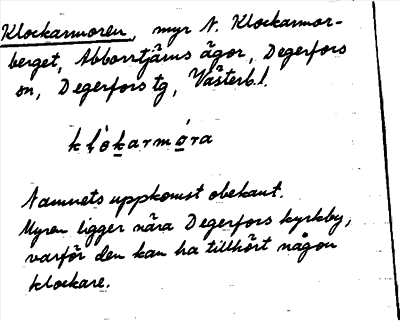 Klockarmoren, myr N. Klockarmor-
berget, Abborrtjärns ägor, Degerfors
sn, Degerfors tg, Västerb.l.
klò̀karmó̱ra
Namnets uppkomst obekant.
Myren ligger nära Degerfors kyrkby,
varför den kan ha tillhört någon
klockare.